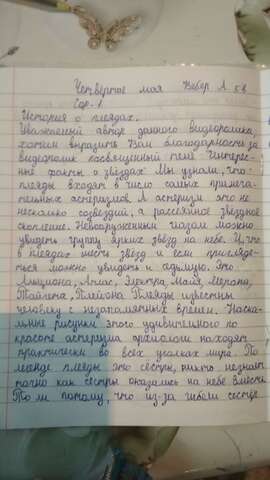 Четвертое мая Вебер А 5 В
Стр. 1
История о плеядах.
Уважаемый автор данного видеоролика,
хотим выразить Вам благодарность за
видеоролик посвященный теме "Интерес-
ные факты о звёздах" Мы узнали, что
плеяды входят в число самых примеча-
тельных астеризмов. А астеризм это не
несколько созвездий, а рассеянное звездное
скопление. Невооруженным глазом можно
увидеть группу ярких звёзд на небе. И что
в плеядах шесть звёзд и если пригляде-
ться можно увидеть и седьмую. Это
Альциона, Атлас, Электра, Майя, Меропа,
Тайгета, Плейона. Плеяды известны
человеку с незапамятных времен. Наска-
льные рисунки этого удивительного по
красоте астеризма археологи находят
практически во всех уголках мира. По
легенде плеяды это сёстры, никто не знает
точно как сёстры оказались на небе вместе.
То ли потому, что из-за гибели сестёр